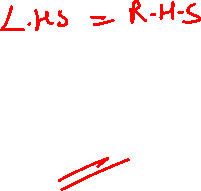 L.HS = R-H-S